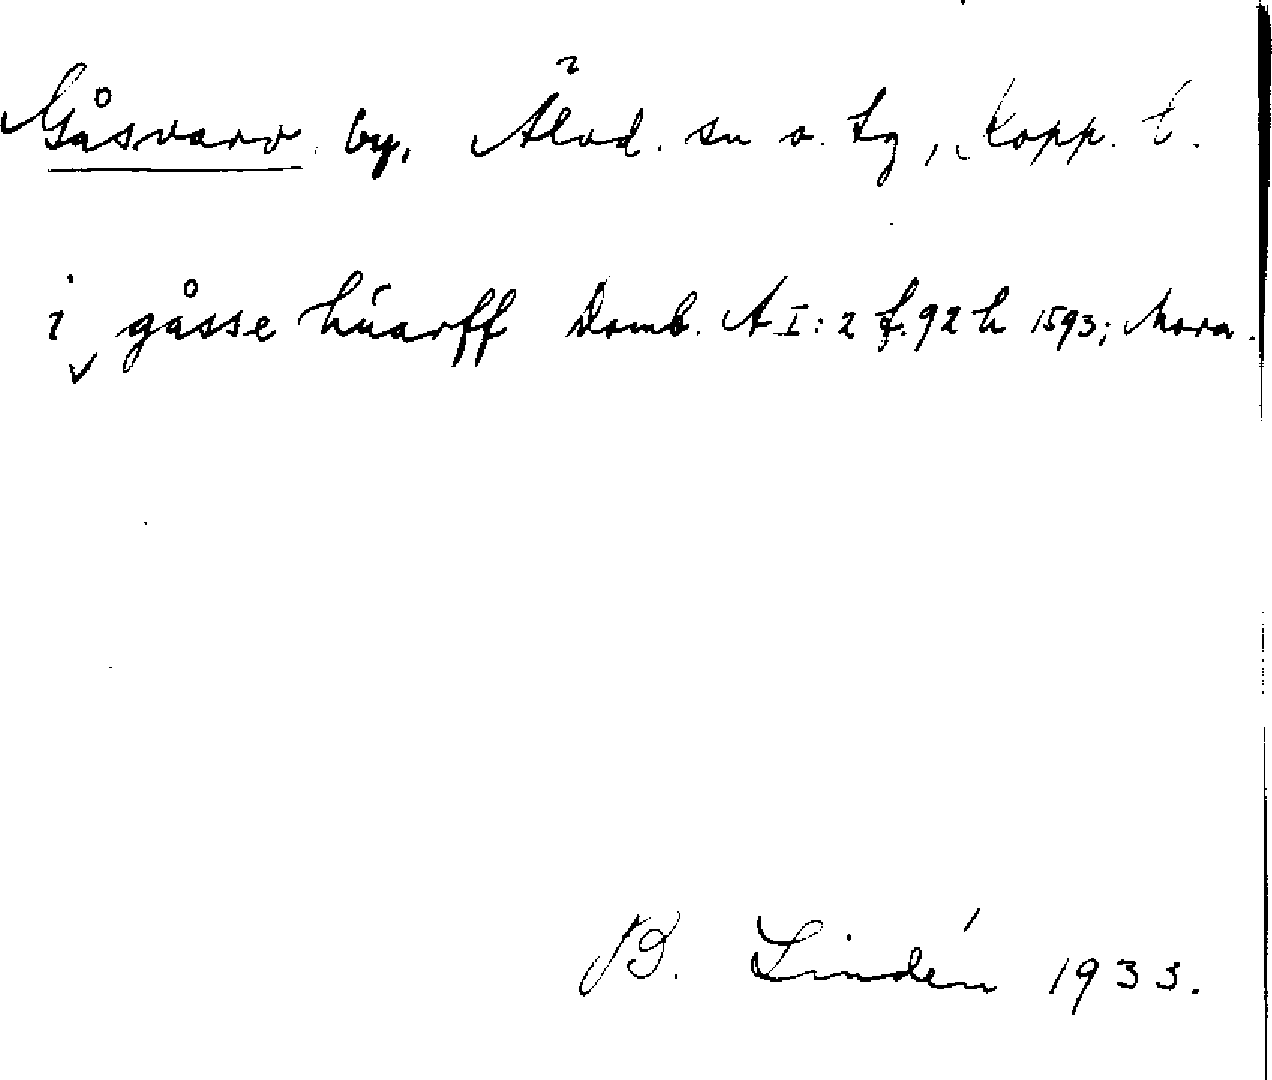 Gåsvarv by, Älvd. sn o. tg, Kopp. l.
i gåsse húarff Domb. A I: 2 f. 92 h 1593; Mora.
B. Lindén 1933.